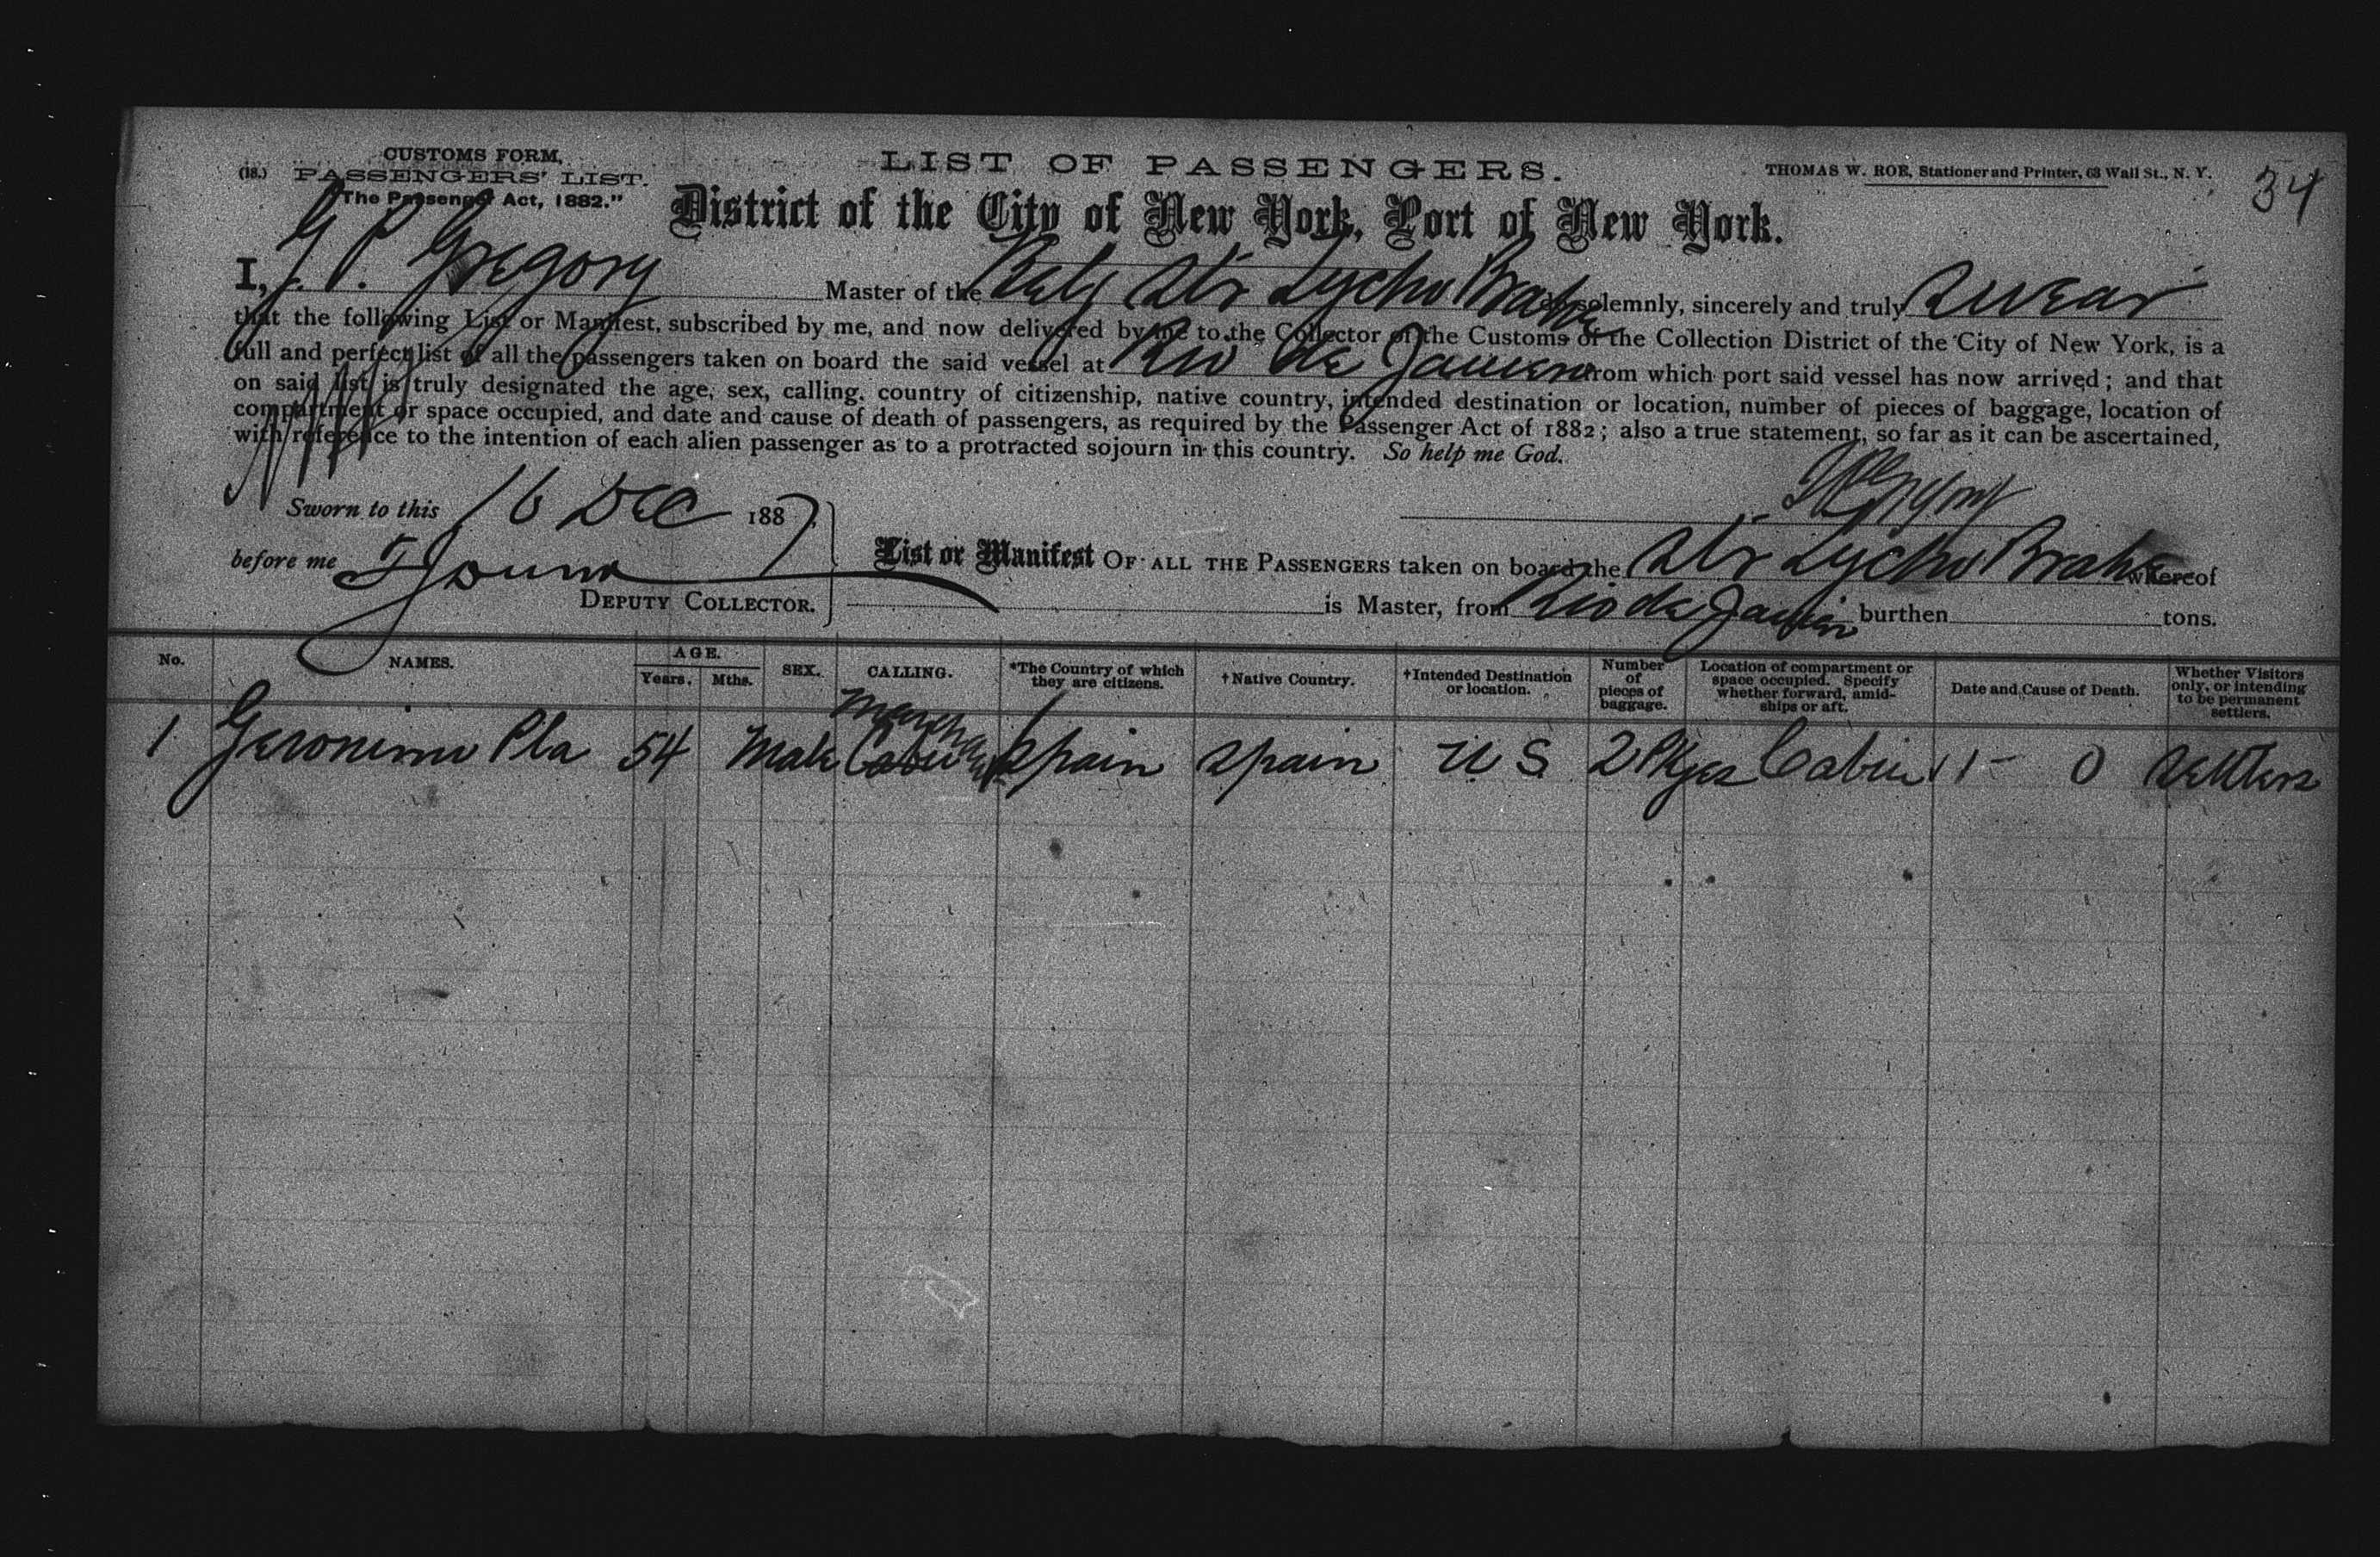 CUSTOMS FORM,
(18.) PASSENGERS' LIST.
"The Passenger Act, 1882."
LIST OF PASSENGERS.
THOMAS W. ROE, Stationer and Printer, 63 Wall St., N. Y.
34
District of the City of New York, Port of New York.
I, G. P. Gregory Master of the Belg Str Tycho Brahe do solemnly, sincerely and truly Swear
that the following List or Manifest, subscribed by me, and now delivered by me to the Collector of the Customs of the Collection District of the City of New York, is a
full and perfect list of all the passengers taken on board the said vessel at Rio de Janeiro from which port said vessel has now arrived; and that
on said list is truly designated the age, sex, calling, country of citizenship, native country, intended destination or location, number of pieces of baggage, location of
compartment or space occupied, and date and cause of death of passengers, as required by the Passenger Act of 1882; also a true statement, so far as it can be ascertained,
with reference to the intention of each alien passenger as to a protracted sojourn in this country. So help me God.
Sworn to this 16 Dec 1887.
before me
DEPUTY COLLECTOR.
List or Manifest OF ALL THE PASSENGERS taken on board the Str Tycho Brahe whereof
is Master, from Rio de Janeiro burthen tons.
No. NAMES. AGE. Years. Mths. SEX. CALLING. *The Country of which they are citizens. †Native Country. †Intended Destination or location. Number of pieces of baggage. Location of compartment or space occupied. Specify whether forward, amidships or aft. Date and Cause of Death. Whether Visitors only, or intending to be permanent settlers.
1 Geronimo Pla 54 Male Spain Spain U S 2 Pkges Cabin 1 - 0 Settlers